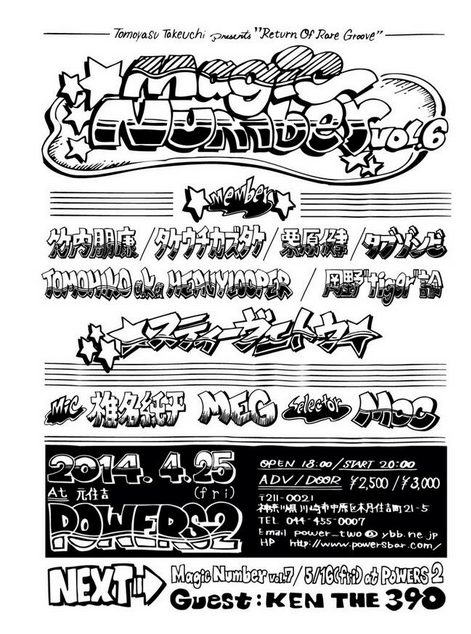 Tomoyasu Takeuchi presents "Return Of Rare Groove"
Magic
Number vol.6
member
竹内朋康 / タケウチカズタケ / 栗原健 / タブゾンビ
TOMOHIKO a.k.a. HEAVYLOOPER / 岡野"tiger"諭
スティーヴエトウ
Mic 椎名純平 MEG Selector MOC
2014.4.25
(fri)
At 元住吉
POWERS2
OPEN 18:00 / START 20:00
ADV / DOOR ¥2,500 / ¥3,000
〒211-0021
神奈川県川崎市中原区木月住吉町21-5
TEL 044-455-0007
Email power_two@ybb.ne.jp
HP http://www.powersbar.com/
NEXT Magic Number vol.7 / 5/16(fri) at POWERS 2
Guest : KEN THE 390